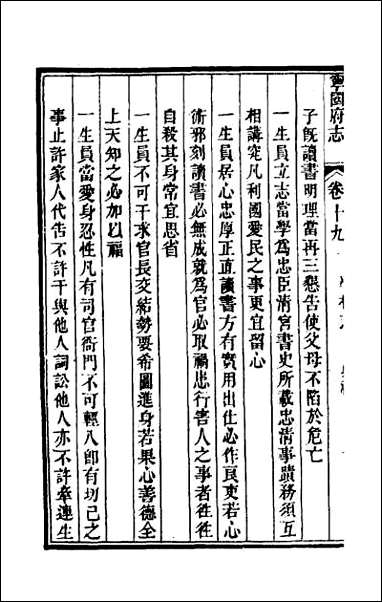 寧國府志　卷十九
子既讀書明理當再三懇告使父母不陷於危亡
一生員立志當學爲忠臣清官書史所載忠清事蹟務須互
相講究凡利國愛民之事更宜留心
一生員居心忠厚正直讀書方有實用出仕必作良吏若心
術邪刻讀書必無成就爲官必取禍患行害人之事者往往
自殺其身常宜思省
一生員不可干求官長交結勢要希圖進身若果心善德全
上天知之必加以福
一生員當愛身忍性凡有司官衙門不可輕入卽有切己之
事止許家人代告不許干與他人詞訟他人亦不許牽連生